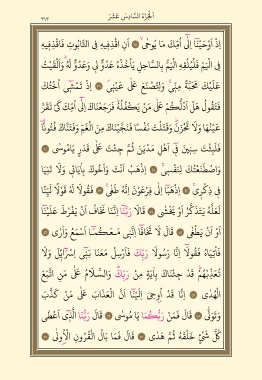 الجزء السادس عشر
٣١٣
إِذْ أَوْحَيْنَا إِلَى أُمِّكَ مَا يُوحَى ۝ أَنِ اقْذِفِيهِ فِي التَّابُوتِ فَاقْذِفِيهِ
فِي الْيَمِّ فَلْيُلْقِهِ الْيَمُّ بِالسَّاحِلِ يَأْخُذْهُ عَدُوٌّ لِي وَعَدُوٌّ لَهُ وَأَلْقَيْتُ
عَلَيْكَ مَحَبَّةً مِنِّي وَلِتُصْنَعَ عَلَى عَيْنِي ۝ إِذْ تَمْشِي أُخْتُكَ
فَتَقُولُ هَلْ أَدُلُّكُمْ عَلَى مَنْ يَكْفُلُهُ فَرَجَعْنَاكَ إِلَى أُمِّكَ كَيْ تَقَرَّ
عَيْنُهَا وَلَا تَحْزَنَ وَقَتَلْتَ نَفْسًا فَنَجَّيْنَاكَ مِنَ الْغَمِّ وَفَتَنَّاكَ فُتُونًا
فَلَبِثْتَ سِنِينَ فِي أَهْلِ مَدْيَنَ ثُمَّ جِئْتَ عَلَى قَدَرٍ يَامُوسَى ۝
وَاصْطَنَعْتُكَ لِنَفْسِي ۝ اذْهَبْ أَنْتَ وَأَخُوكَ بِآيَاتِي وَلَا تَنِيَا
فِي ذِكْرِي ۝ اذْهَبَا إِلَى فِرْعَوْنَ إِنَّهُ طَغَى ۝ فَقُولَا لَهُ قَوْلًا لَيِّنًا
لَعَلَّهُ يَتَذَكَّرُ أَوْ يَخْشَى ۝ قَالَا رَبَّنَا إِنَّنَا نَخَافُ أَنْ يَفْرُطَ عَلَيْنَا
أَوْ أَنْ يَطْغَى ۝ قَالَ لَا تَخَافَا إِنَّنِي مَعَكُمَا أَسْمَعُ وَأَرَى ۝
فَأْتِيَاهُ فَقُولَا إِنَّا رَسُولَا رَبِّكَ فَأَرْسِلْ مَعَنَا بَنِي إِسْرَائِيلَ وَلَا
تُعَذِّبْهُمْ قَدْ جِئْنَاكَ بِآيَةٍ مِنْ رَبِّكَ وَالسَّلَامُ عَلَى مَنِ اتَّبَعَ
الْهُدَى ۝ إِنَّا قَدْ أُوحِيَ إِلَيْنَا أَنَّ الْعَذَابَ عَلَى مَنْ كَذَّبَ
وَتَوَلَّى ۝ قَالَ فَمَنْ رَبُّكُمَا يَا مُوسَى ۝ قَالَ رَبُّنَا الَّذِي أَعْطَى
كُلَّ شَيْءٍ خَلْقَهُ ثُمَّ هَدَى ۝ قَالَ فَمَا بَالُ الْقُرُونِ الْأُولَى ۝